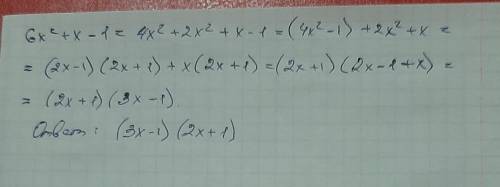 6x² + x - 1 = 4x² + 2x² + x - 1 = (4x² - 1) + 2x² + x =
= (2x-1) (2x+1) + x (2x+1) = (2x+1) (2x-1+x) =
= (2x+1) (3x-1).
Ответ: (3x-1) (2x+1)